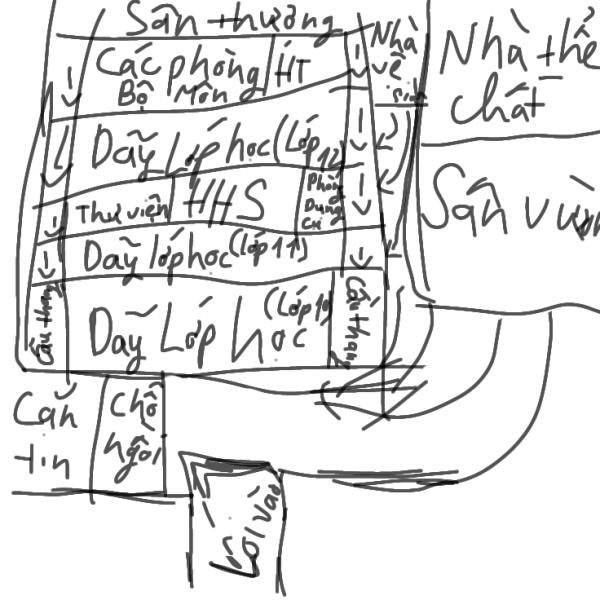 Sân thượng
Các phòng
Bộ Môn
HT
Nhà
vệ
sinh
Nhà thể
chất
Dãy Lớp học (Lớp 12)
Thư viện
HHS
Phòng
Dụng
Cụ
Sân vườn
Dãy lớp học (lớp 11)
Dãy Lớp học
(Lớp 10)
Cầu thang
Cầu thang
Căn
tin
Chỗ
ngồi
Lối vào